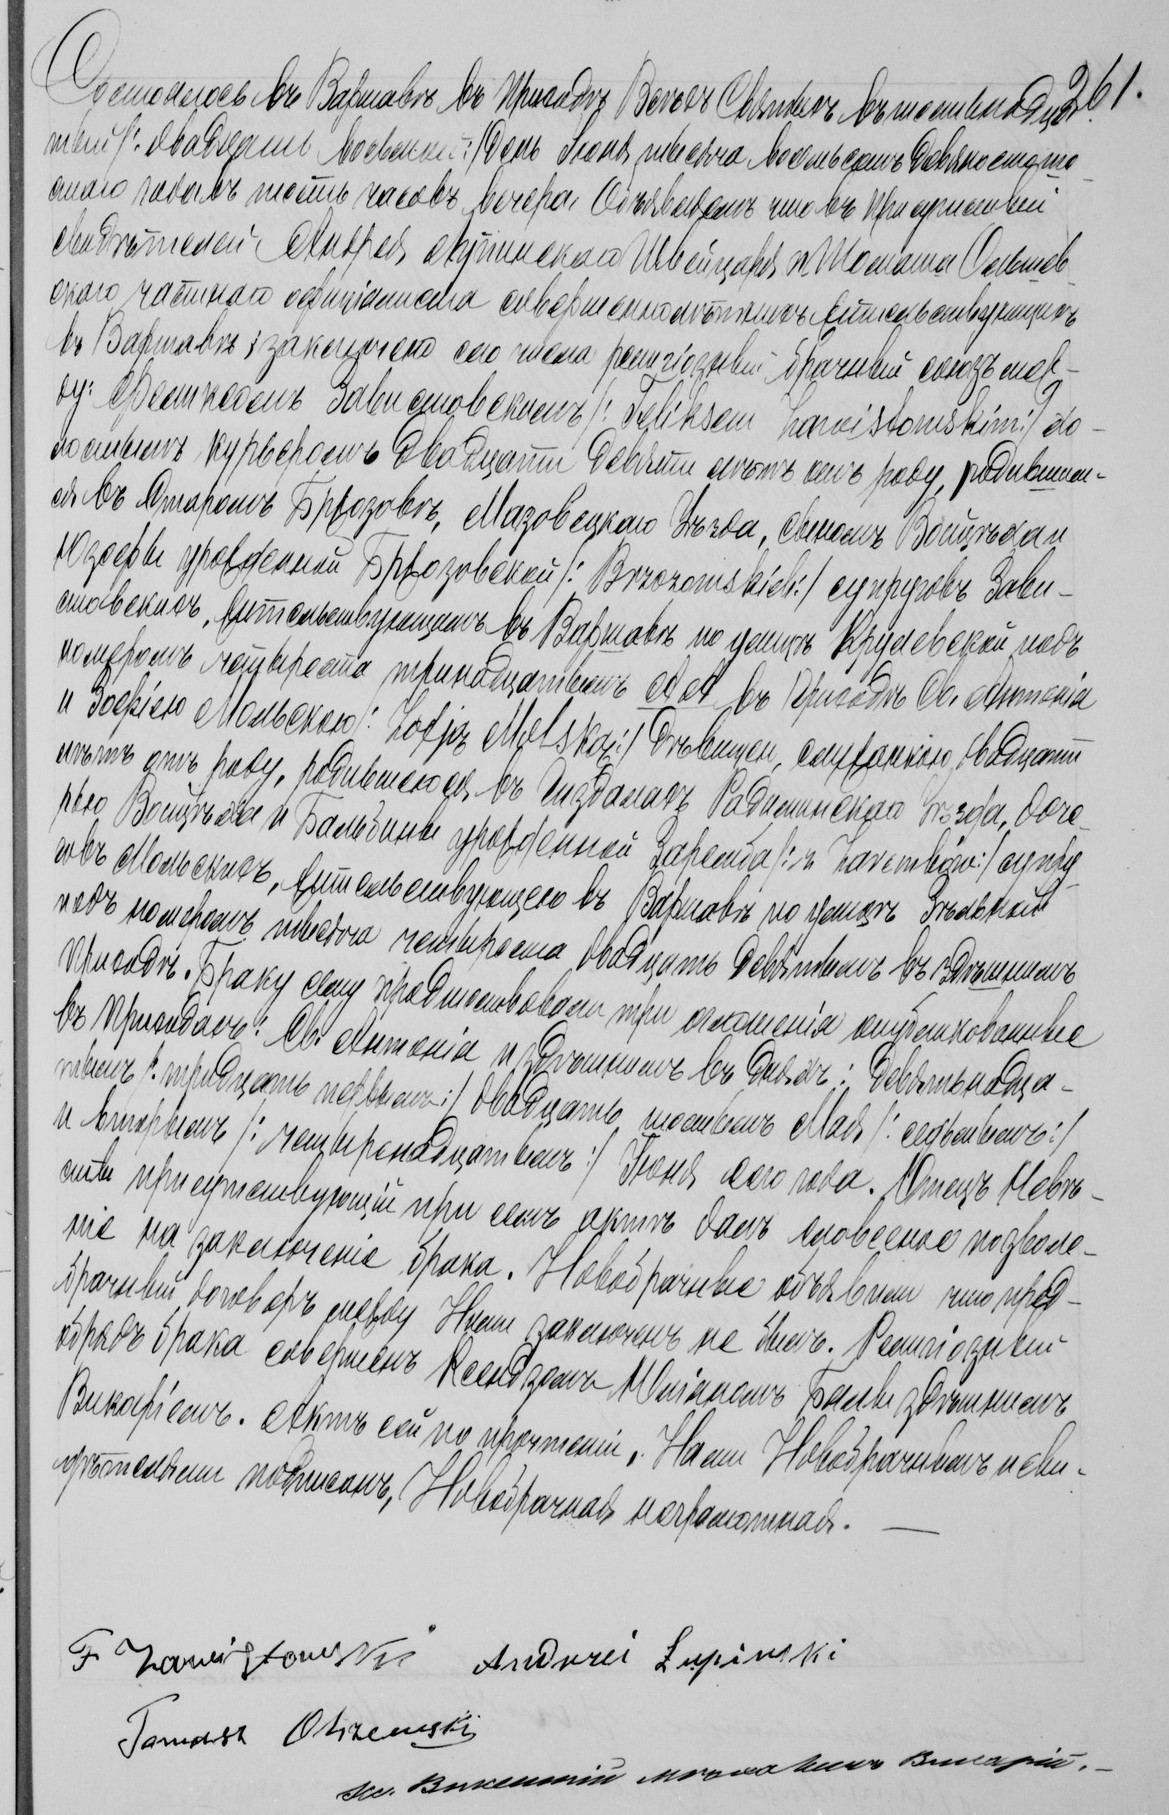 361.
Состоялось въ Варшавѣ въ Приходѣ Всѣхъ Святыхъ въ шестнадца-
тый /: двадцать восьмый :/ день Іюня тысяча восемьсотъ девяносто
года въ шесть часовъ вечера. Объявляемъ что въ присутствіи
свидѣтелей Андрея Лупинскаго Швейцара и Томаша Ольшев-
скаго частнаго оффиціалиста совершеннолѣтнихъ жительствующихъ
въ Варшавѣ, заключено сего числа религіозный брачный союзъ меж-
ду: Феликсомъ Завистовскимъ /: Feliksem Zawistowskim :/ хо-
лостымъ, курьеромъ двадцати девяти лѣтъ отъ роду, родившим-
ся въ Старомъ Бржозовѣ, Мазовецкаго Уѣзда, сыномъ Войцѣха и
Юзефы урожденной Бржозовской /: Brzozowskich :/ супруговъ Зави-
стовскихъ, жительствующимъ въ Варшавѣ по улицѣ Крулевской подъ
номеромъ четыреста тринадцатымъ въ Приходѣ Св. Антонія
и Зофіею Мольскою /: Zofją Molską :/ дѣвицею, служанкою, двадцати
лѣтъ отъ роду, родившеюся въ Радиминскаго Уѣзда, доче-
рью Войцѣха и Бальбины урожденной Заремба /: z Zarembów :/ супру-
говъ Мольскихъ, жительствующею въ Варшавѣ по улицѣ Зѣльной
подъ номеромъ тысяча четыреста двадцать девятымъ въ здѣшнемъ
Приходѣ. Браку сему предшествовали три оглашенія опубликованныя
въ Приходахъ: Св. Антонія и здѣшнемъ въ дняхъ: девятнадца-
томъ /: тридцать первомъ :/ двадцать шестомъ Мая /: седьмомъ :/
и вторымъ /: четырнадцатомъ :/ Іюня сего года. Отецъ Невѣ-
сты присутствующій при семъ актѣ далъ словесное позволе-
ніе на заключеніе брака. Новобрачные объявили что пред-
брачный договоръ между Ними заключенъ не былъ. Религіозный
обрядъ брака совершенъ Ксендзомъ Юліаномъ здѣшнимъ
Викаріемъ. Актъ сей по прочтеніи, Нами Новобрачнымъ и сви-
дѣтелями подписанъ, Новобрачная неграмотная. —
F Zawistowski Andrzei Łupinski
Tomasz Olszewski
Кс. Викентій Викарій. –